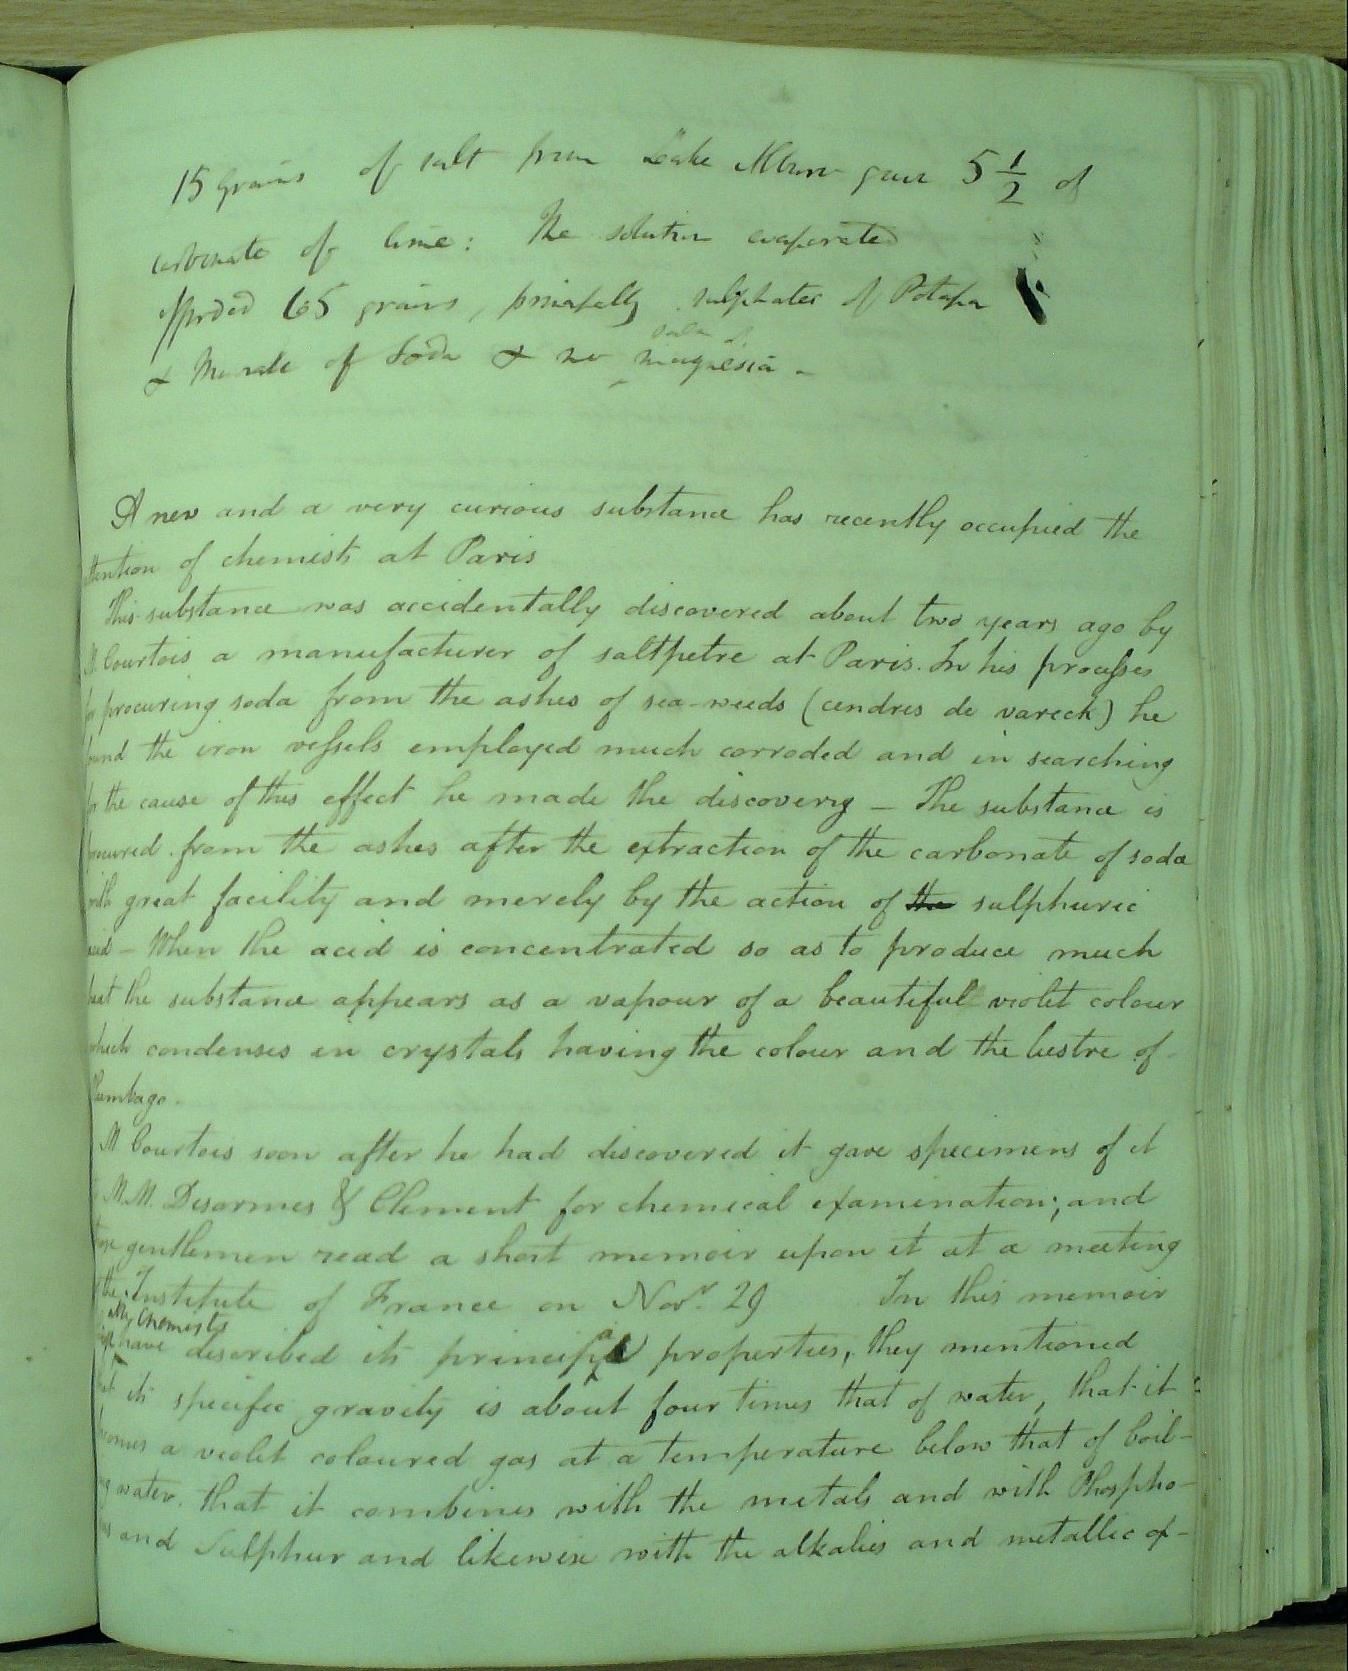 15 Grains of salt from Lake Albano gave 5 1/2 of
carbonate of lime: The solution evaporated
afforded 65 grains, principally sulphates of Potassa
& Muriate of Soda & no salts of magnesia -
A new and a very curious substance has recently occupied the
attention of chemists at Paris
This substance was accidentally discovered about two years ago by
M. Courtois a manufacturer of saltpetre at Paris. In his processes
for procuring soda from the ashes of sea-weeds (cendres de vareck) he
found the iron vessels employed much corroded and in searching
for the cause of this effect he made the discovery — The substance is
procured from the ashes after the extraction of the carbonate of soda
with great facility and merely by the action of the sulphuric
acid – When the acid is concentrated so as to produce much
heat the substance appears as a vapour of a beautiful violet colour
which condenses in crystals having the colour and the lustre of
Plumbago.
M Courtois soon after he had discovered it gave specimens of it
to M.M. Desormes & Clement for chemical examination; and
those gentlemen read a short memoir upon it at a meeting
of the Institute of France on Novr. 29 In this memoir
Chemists
have described its principal properties, they mentioned
that its specific gravity is about four times that of water, that it
becomes a violet coloured gas at a temperature below that of boil-
ing water. that it combines with the metals and with Phospho-
rus and Sulphur and likewise with the alkalies and metallic ox-